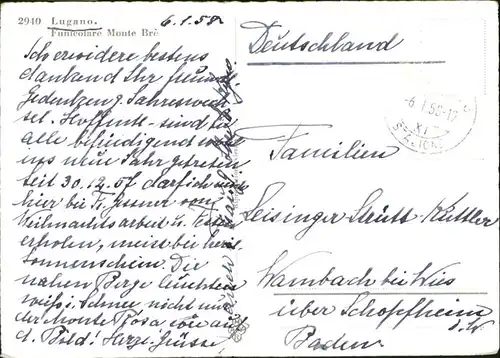 2940 Lugano.
Funicolare Monte Brè
6.1.58
Ich erwidere bestens
dankend Ihr freundl.
Gedenken z. Jahreswech
sel. Hoffentl. sind Sie
alle befriedigend
ins neue Jahr getreten
Seit 30.12.57 darf ich
hier bei Fr. vom
Weihnachtsarbeit u.
erholen, meist bei herrl.
Sonnenschein. Die
nahen Berge leuchten
weiss i. Schnee nicht nur
der Monte Rosa wie auf
d. Bild! Herzl. Grüsse
Deutschland
-6.1.58-17
XI
Familien
Leisinger Strütt-Kuttler
Wambach bei Wies
über Schopfheim
Baden